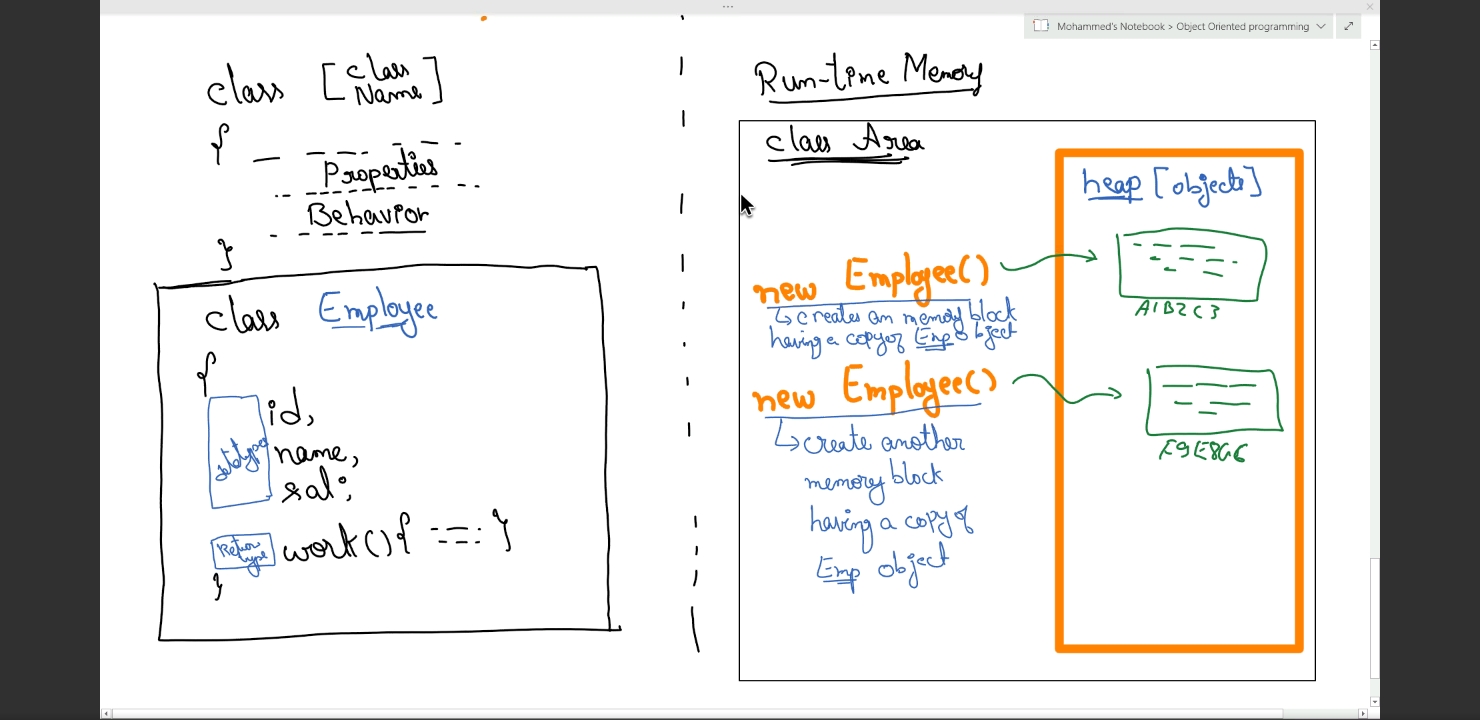 Mohammed's Notebook > Object Oriented programming
class [class Name]
{
Properties
Behavior
}
class Employee
{
datatype
id,
name,
sal;
Return type
work(){ }
}
Run-time Memory
class Area
heap [objects]
new Employee()
creates an memory block
having a copy of Emp object
A1B2C3
new Employee()
create another
memory block
having a copy of
Emp object
F9E8G6